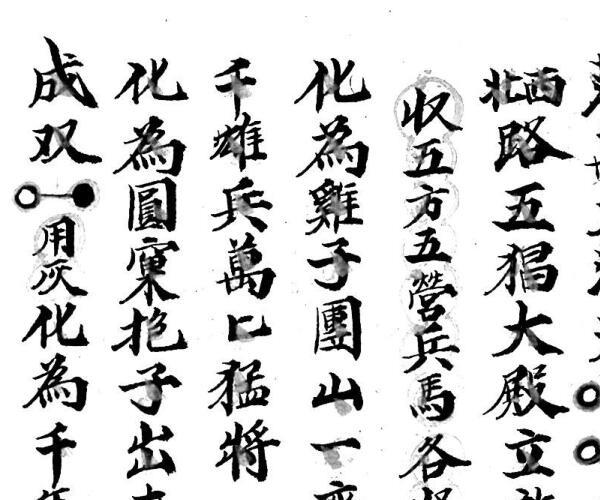 西北路五猖大殿立
收五方五營兵馬各
化為雞子團山一
千雄兵萬匕猛將
化為圓窠抱子出
成双用灰化為千